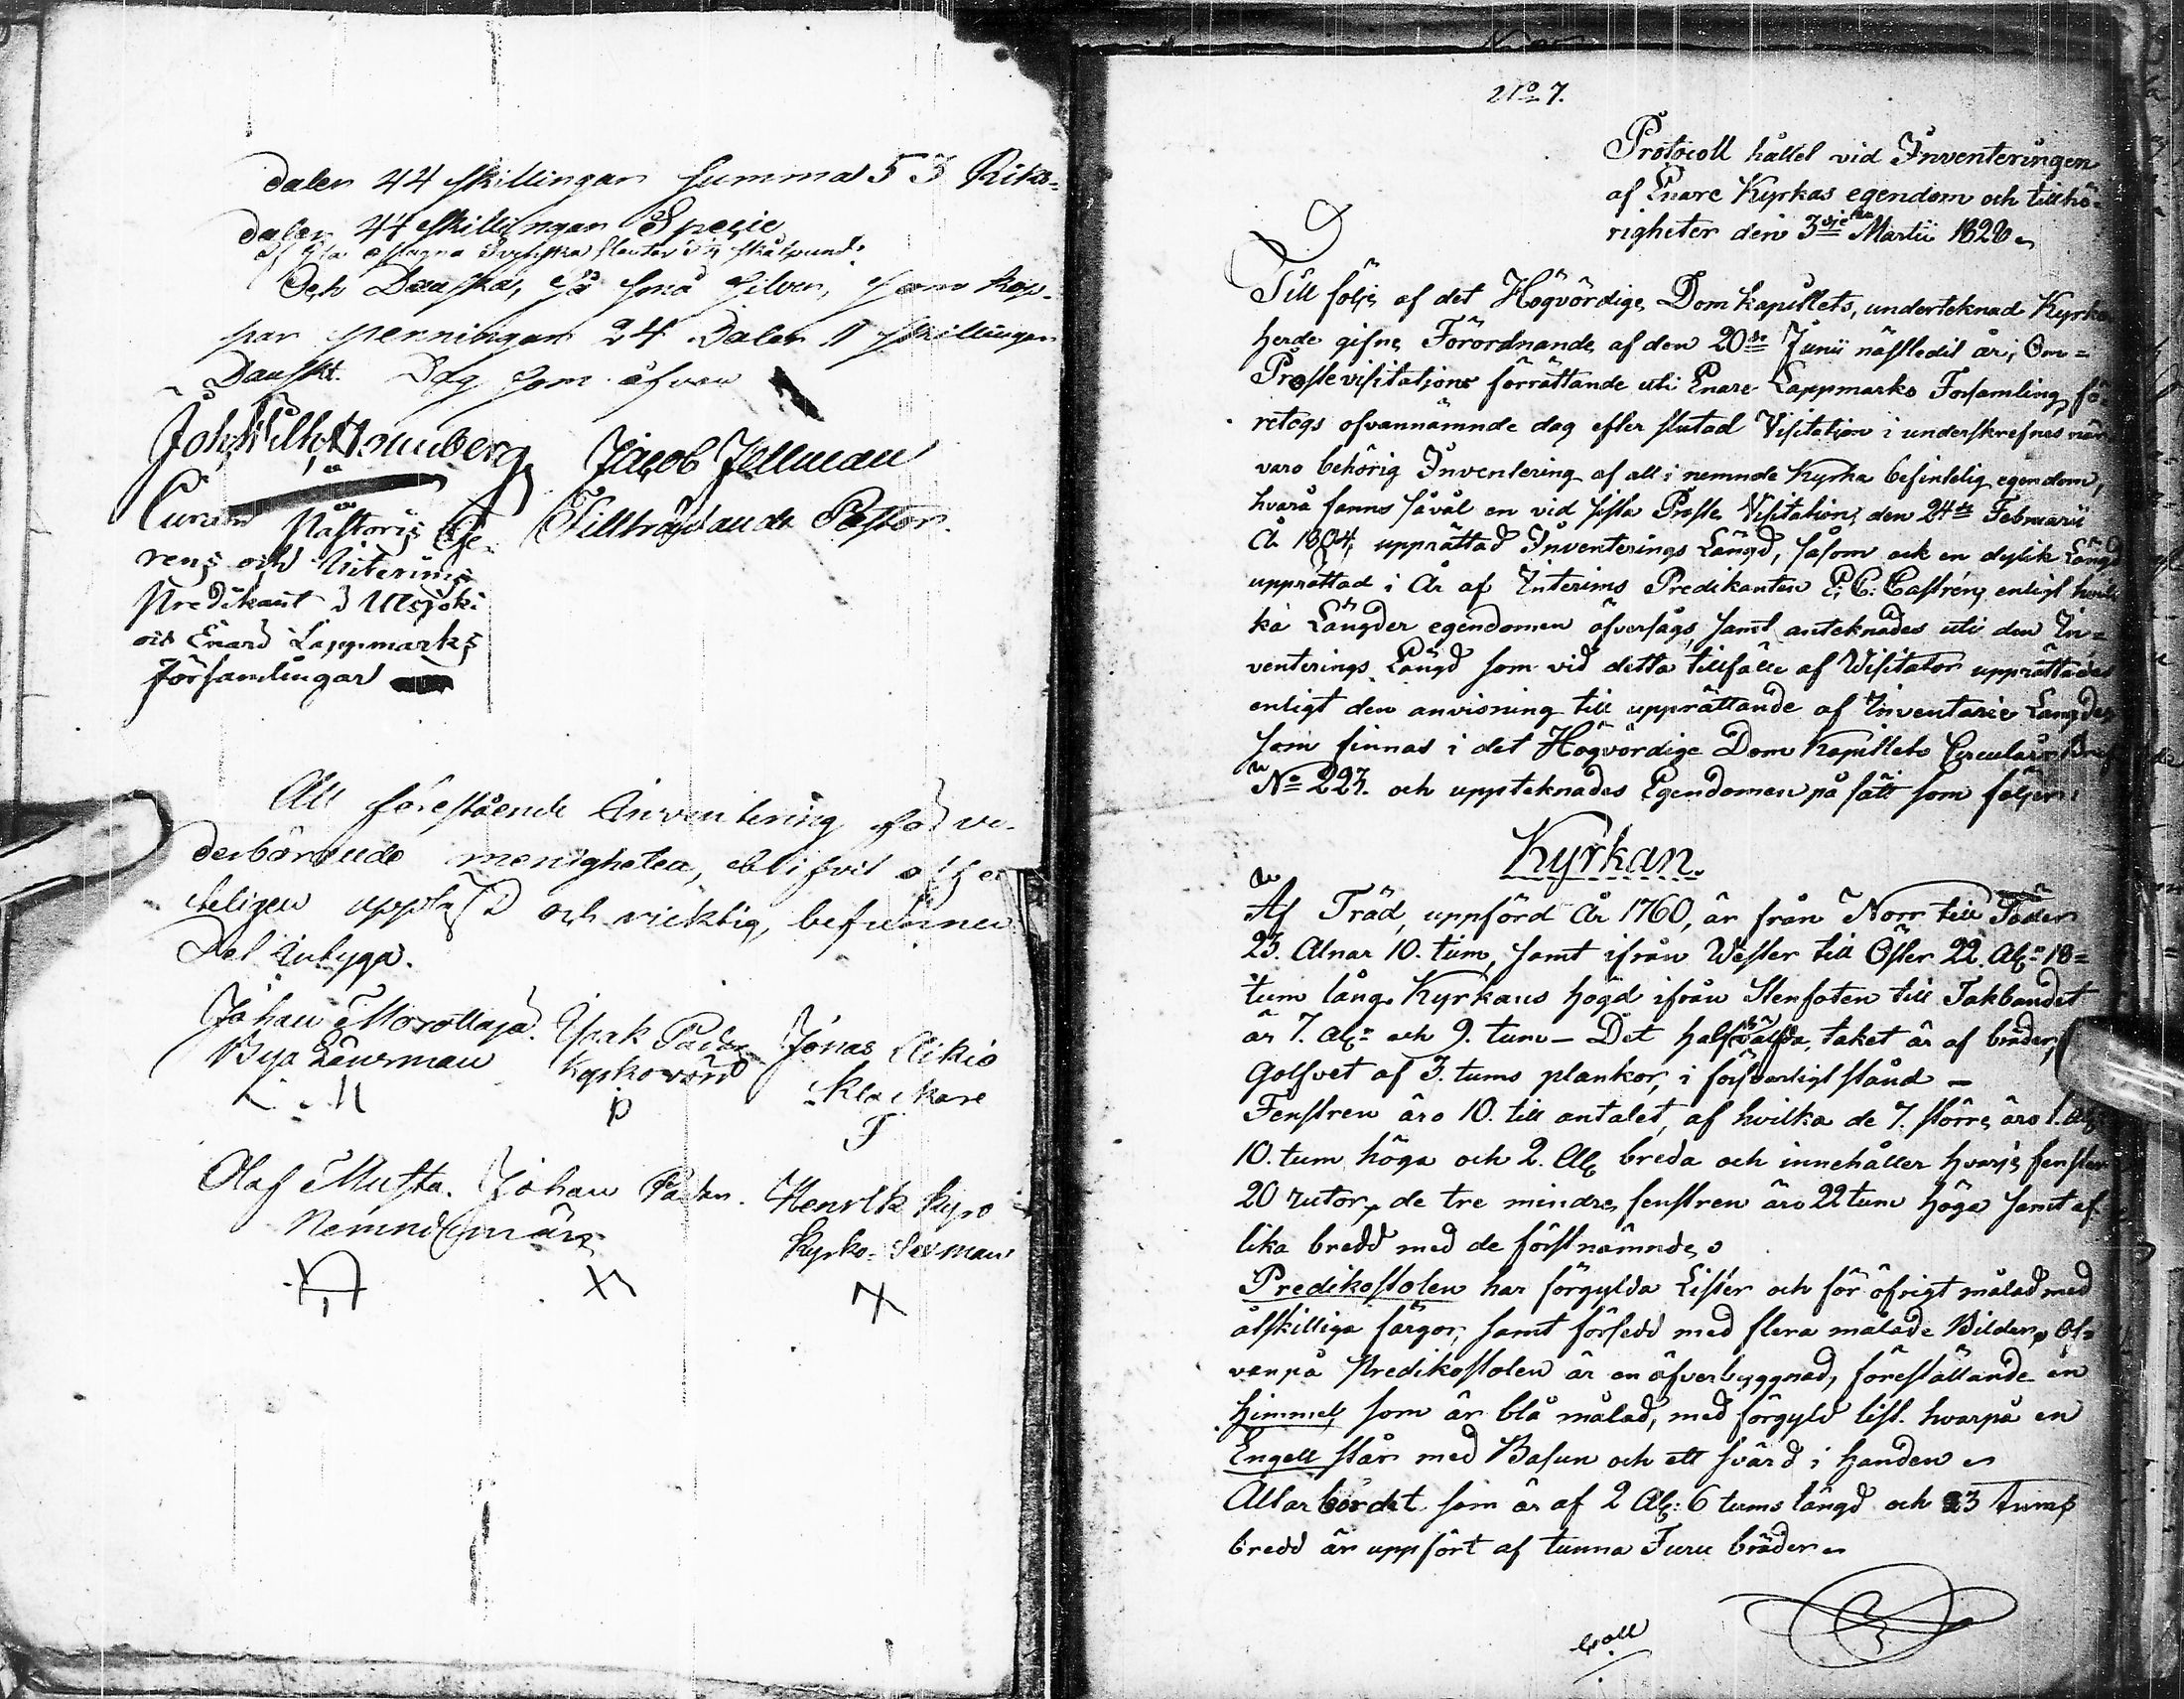 daler 44 skillingar summa 53 Riks-
daler 44 skillingar Specie
Svenska Slantar skålpund.
Och Danska, så små silver, som kop-
par penningar 24 Daler skillingar
Danskt. Dag som ofvan
Joh: Wilh: Jacob Fellman
Curam Pastoris Ge- Tillträdande Pastor.
rens och Interims
Predikant i Utsjoki
och Enare Lappmarks
Församlingar
Att förestående Inventering för ve-
derbörande menigheten, blifvit
teligen uppläst och ricktig befunnen
Det intyga.
Johan Morottaja. Isak Padar Jonas Aikio
Bya Länsman Kyrkovärd Klockare
Olaf Musta. Johan Padar. Henrik Kyrö
Nämndemän Kyrko-Sexman
No 7.
Protocoll hållet vid Inventeringen
af Enare Kyrkas egendom och tillhö-
righeter den 3dje Martii 1828
Till följe af det Högvördige Dom Kapitlets, undertecknad Kyrko
herde gifne Förordnande af den 20de Junii nästledit år, Om=
Prostevisitations förrättande uti Enare Lappmarks Forsamling, fö-
retogs ofvannämnde dag efter slutad Visitation i underskrefnas när
varo behörig Inventering af all i nemnde Kyrka befintelig egendom,
hvarå fanns såväl en vid sista Proste Visitation den 24de Februarii
År 1804, upprättad Inventerings Längd, såsom ock en dylik Längd
upprättad i År af Interims Predikanten E: C: Castrén, enligt hvil
ka Längder egendomen öfversågs, samt anteknades uti den In=
venterings Längd som vid detta tillfälle af Visitator upprättades
enligt den anvisning till upprättande af Inventarie Längder
som finnas i det Högvördige Dom Kapitlets Circulair Bref
No 223. och uppteknades Egendomen på sätt som följer:
Kyrkan.
Af Träd, uppförd År 1760, är från Norr till Söder
23. Alnar 10. tum, samt ifrån Wester till Öster 22. Aln: 18=
tum lång. Kyrkans högd ifrån Stenfoten till Takbandet
är 7. Aln: och 9. tum – Det halfhvälfda, taket är af bräder,
Golfvet af 3. tums plankor, i försvarligt stånd –
Fenstren äro 10. till antalet, af hvilka de 7. större äro 1. Aln
10. tum höga och 2. Aln breda och innehåller hvarje fenster
20 rutor, de tre mindre fenstren äro 22 tum höga samt af
lika bredd med de förstnämnde.
Predikostolen har förgylda Lister och för öfrigt målad med
åtskilliga färgor, samt försedd med flera målade Bilder, Of-
vanpå Predikostolen är en öfverbyggnad, föreställande en
Himmel, som är blå målad, med förgyld list. hvarpå en
Engell står med Basun och ett svärd i handen
Altarbordet som är af 2 Aln: 6 tums längd och 23 tums
bredd är uppfört af tunna Furu bräder